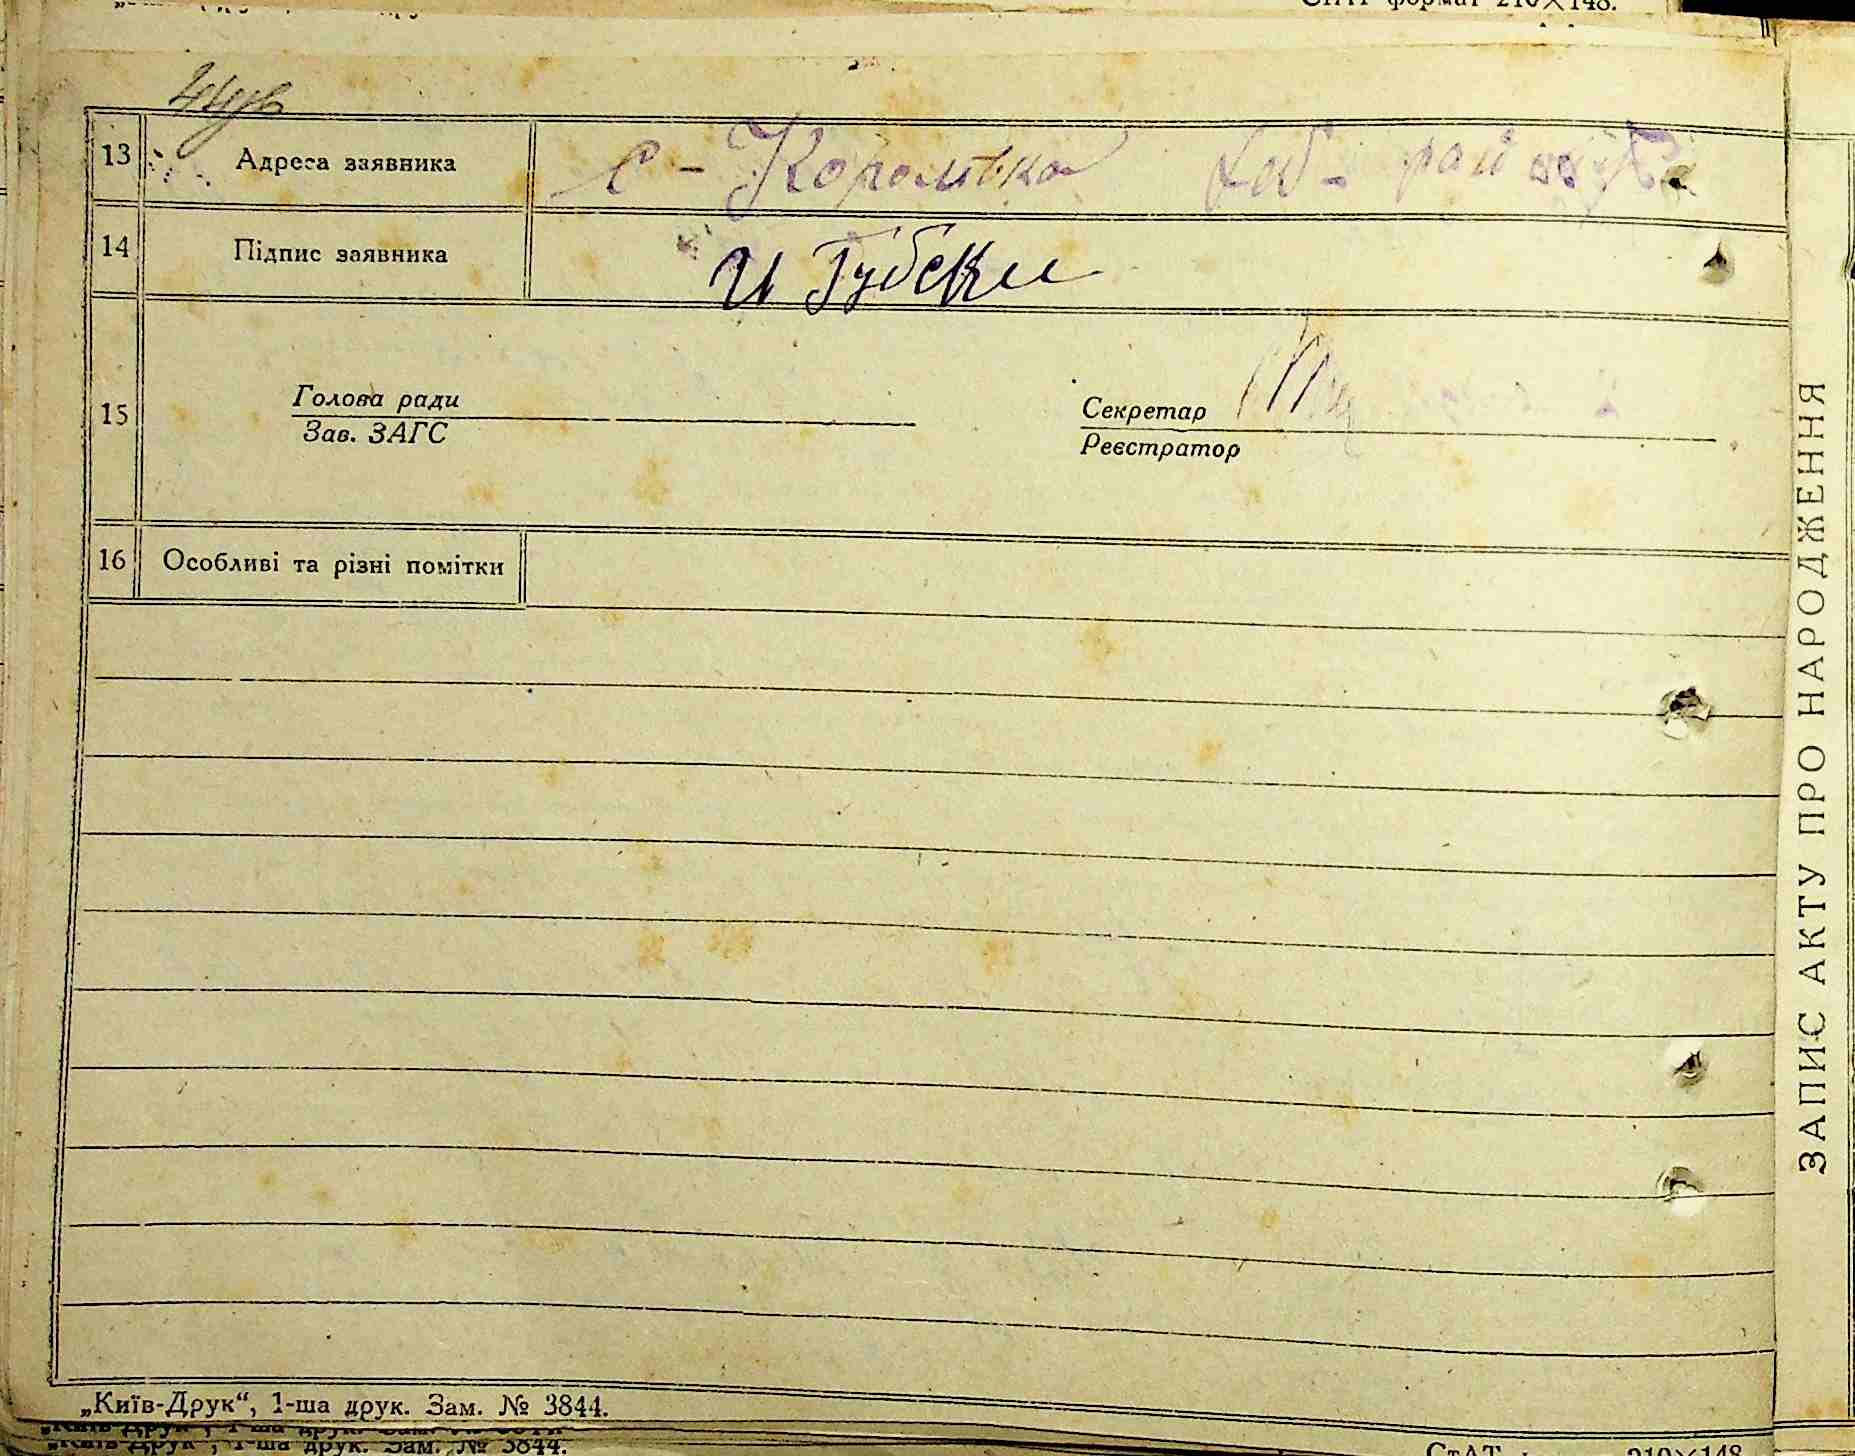 СтАТ формат 210×148.
13 Адреса заявника с - Королівка рай
14 Підпис заявника И Губски
15 Голова ради
Зав. ЗАГС
Секретар
Реєстратор
16 Особливі та різні помітки
„Київ-Друк“, 1-ша друк. Зам. № 3844.
1-ша друк. Зам. № 3844.
СтАТ 210×148
ЗАПИС АКТУ ПРО НАРОДЖЕННЯ